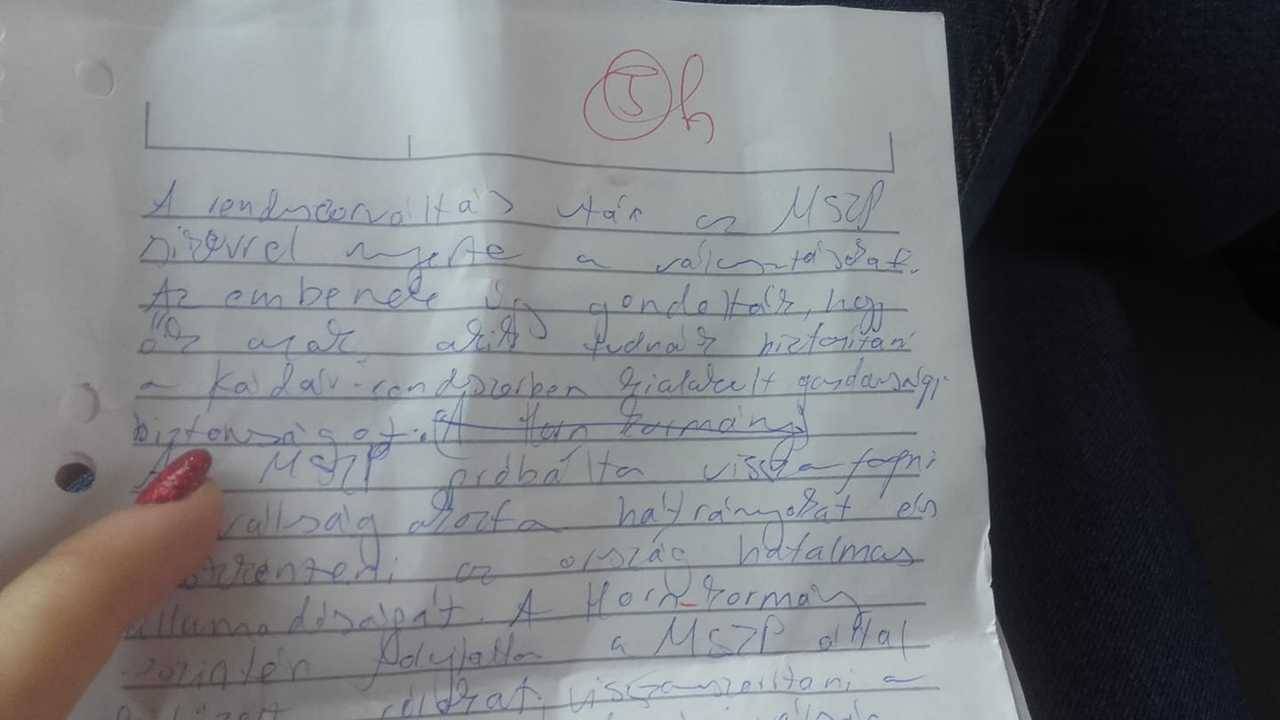 5
A rendszerváltás után az MSZP
nyerte a választásokat.
Az emberek úgy gondolták, hogy
ők azok akik tudnák biztosítani
a Kádár-rendszerben kialakult gazdasági
biztonságot. (A Horn kormány)
MSZP próbálta visszafogni
válság okozta hátrányokat és
az ország hatalmas
államadósságát. A Horn-kormány
szintén folytatta a MSZP által
célokat, visszaszorítani a